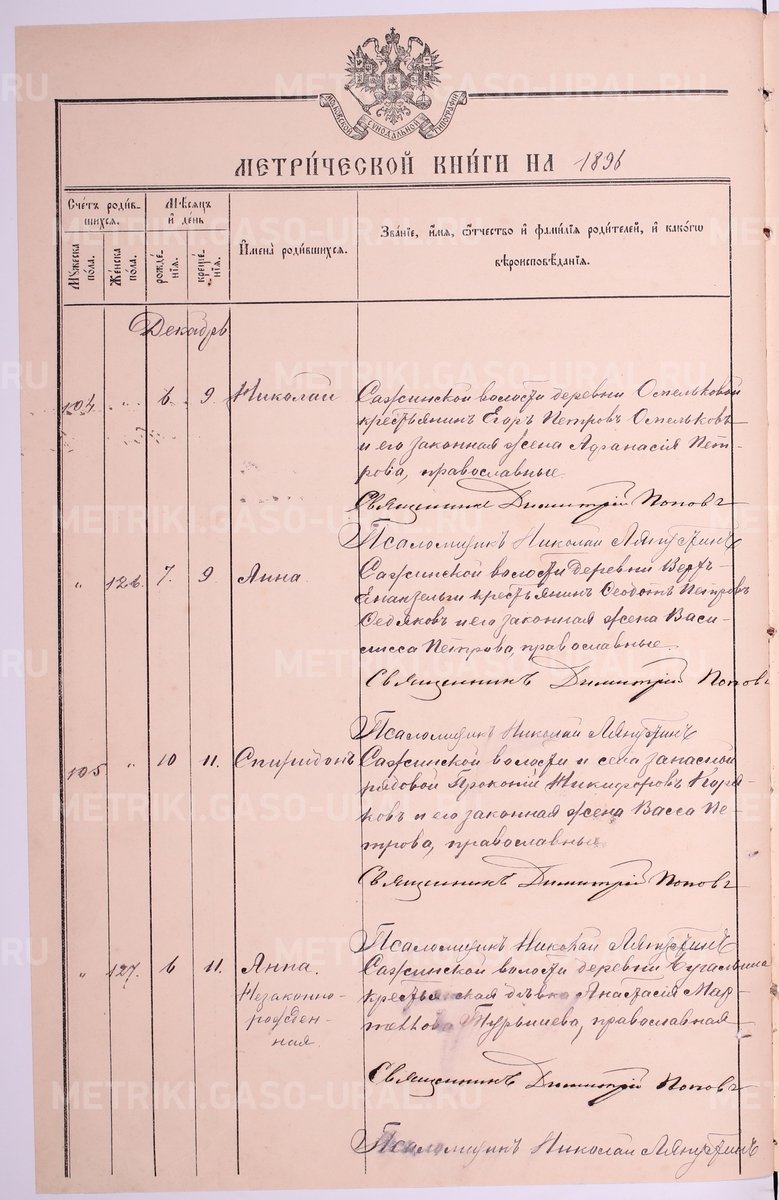 МОСКОВСКОЙ СѴНОДАЛЬНОЙ ТИПОГРАФІИ
МЕТРИ́ЧЕСКОЙ КНИ́ГИ НА 1896
Сче́тъ роди́в-
шихся.
Мѣсяцъ
и҆ день
И҆мена̀ роди́вшихся.
Зва́нїе, и҆́мѧ, ѻ҆́тчество и҆ фами́лїѧ роди́телей, и҆ како́гѡ
вѣроисповѣ́данїѧ.
Мꙋ́жеска
по́ла.
Же́нска
по́ла.
рожде́-
нїѧ.
креще́-
нїѧ.
Декабрь
104 " 6 9 Николай
Сажинской волости деревни Омельковой
крестьянинъ Егоръ Петровъ Омельковъ
и его законная жена Афанасія Пет-
рова, православные.
Священникъ Димитрій Поповъ
Псаломщикъ Николай Ляпустинъ
" 126. 7. 9 Анна
Сажинской волости деревни Верхъ-
крестьянинъ Ѳеодотъ Петровъ
Седяковъ и его законная жена Васи-
лисса Петрова, православные.
Священникъ Димитрій Поповъ
Псаломщикъ Николай Ляпустинъ
105 " 10 11. Спиридонъ
Сажинской волости и села запасной
рядовой Прокопій Никифоровъ
и его законная жена Васса Пе-
трова, православные.
Священникъ Димитрій Поповъ
Псаломщикъ Николай Ляпустинъ
" 127. 6 11. Анна.
Незаконно-
рожден-
ная.
Сажинской волости деревни
крестьянская дѣвка Анастасія Мар-
темьнова Турышева, православная
Священникъ Димитрій Поповъ
Псаломщикъ Николай Ляпустинъ
METRIKI.GASO-URAL.RU